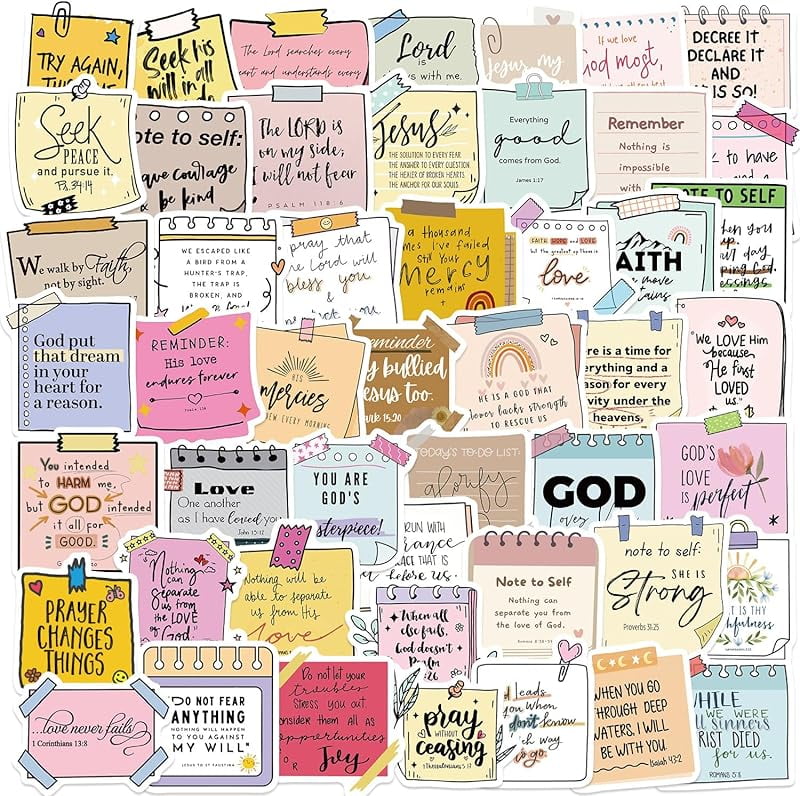 TRY AGAIN,
Seek his
will in all
The Lord searches every
heart and understands every
Lord
is with me.
If we love
God most,
DECREE IT
DECLARE IT
AND
IT IS SO!
Seek
PEACE
and pursue it.
Ps. 34:14
note to self:
have courage
& be kind
The LORD is
on my side;
I will not fear
PSALM 118:6
Jesus
THE SOLUTION TO EVERY FEAR.
THE ANSWER TO EVERY QUESTION.
THE HEALER OF BROKEN HEARTS.
THE ANCHOR FOR OUR SOULS.
Everything
good
comes from God.
James 1:17
Remember
Nothing is
impossible
with
to have
and a
NOTE TO SELF
when you
up.
all day
We walk by Faith,
not by sight.
WE ESCAPED LIKE
A BIRD FROM A
HUNTER'S TRAP,
THE TRAP IS
BROKEN, AND
pray that
the Lord will
bless you &
protect you
a thousand
times I've failed
Still Your
Mercy
remains
FAITH HOPE and LOVE
but the greatest of these is
love
FAITH
move
mountains
God put
that dream
in your
heart for
a reason.
REMINDER:
His love
endures forever
HIS
Mercies
NEW EVERY MORNING
Reminder
they bullied
Jesus too.
Mark 15:20
HE IS A GOD THAT
never lacks strength
TO RESCUE US
There is a time for
everything and a
season for every
activity under the
heavens.
"We LOVE Him
because
He first
LOVED
us."
You intended
to HARM me,
but GOD intended
it all for
GOOD.
Love
One another
as I have loved you
John 15:12
YOU ARE
GOD'S
masterpiece!
TODAY'S TO-DO LIST:
glorify
GOD
over
GOD'S
LOVE
IS perfect
PRAYER
CHANGES
THINGS
Nothing
can
Separate
Us from
the LOVE
of God"
Nothing will be
able to separate
us from His
Love
RUN WITH
before us.
When all
else fails,
God doesn't
Psalm
Note to Self
Nothing can
separate you from
the love of God.
note to self:
SHE IS
Strong
Proverbs 31:25
IT IS THY
faithfulness
...love never fails
1 Corinthians 13:8
"DO NOT FEAR
ANYTHING
NOTHING WILL HAPPEN
TO YOU AGAINST
MY WILL"
JESUS TO ST FAUSTINA
Do not let your
troubles
Stress you out.
Consider them all as
opportunities
for
Joy
pray
WITHOUT
ceasing
1 Thessalonians 5:17
God Leads
you When
you don't know
which way
to go.
WHEN YOU GO
THROUGH DEEP
WATERS, I WILL
BE WITH YOU.
Isaiah 43:2
WHILE
WE WERE
still sinners
CHRIST DIED
for us.
ROMANS 5:8